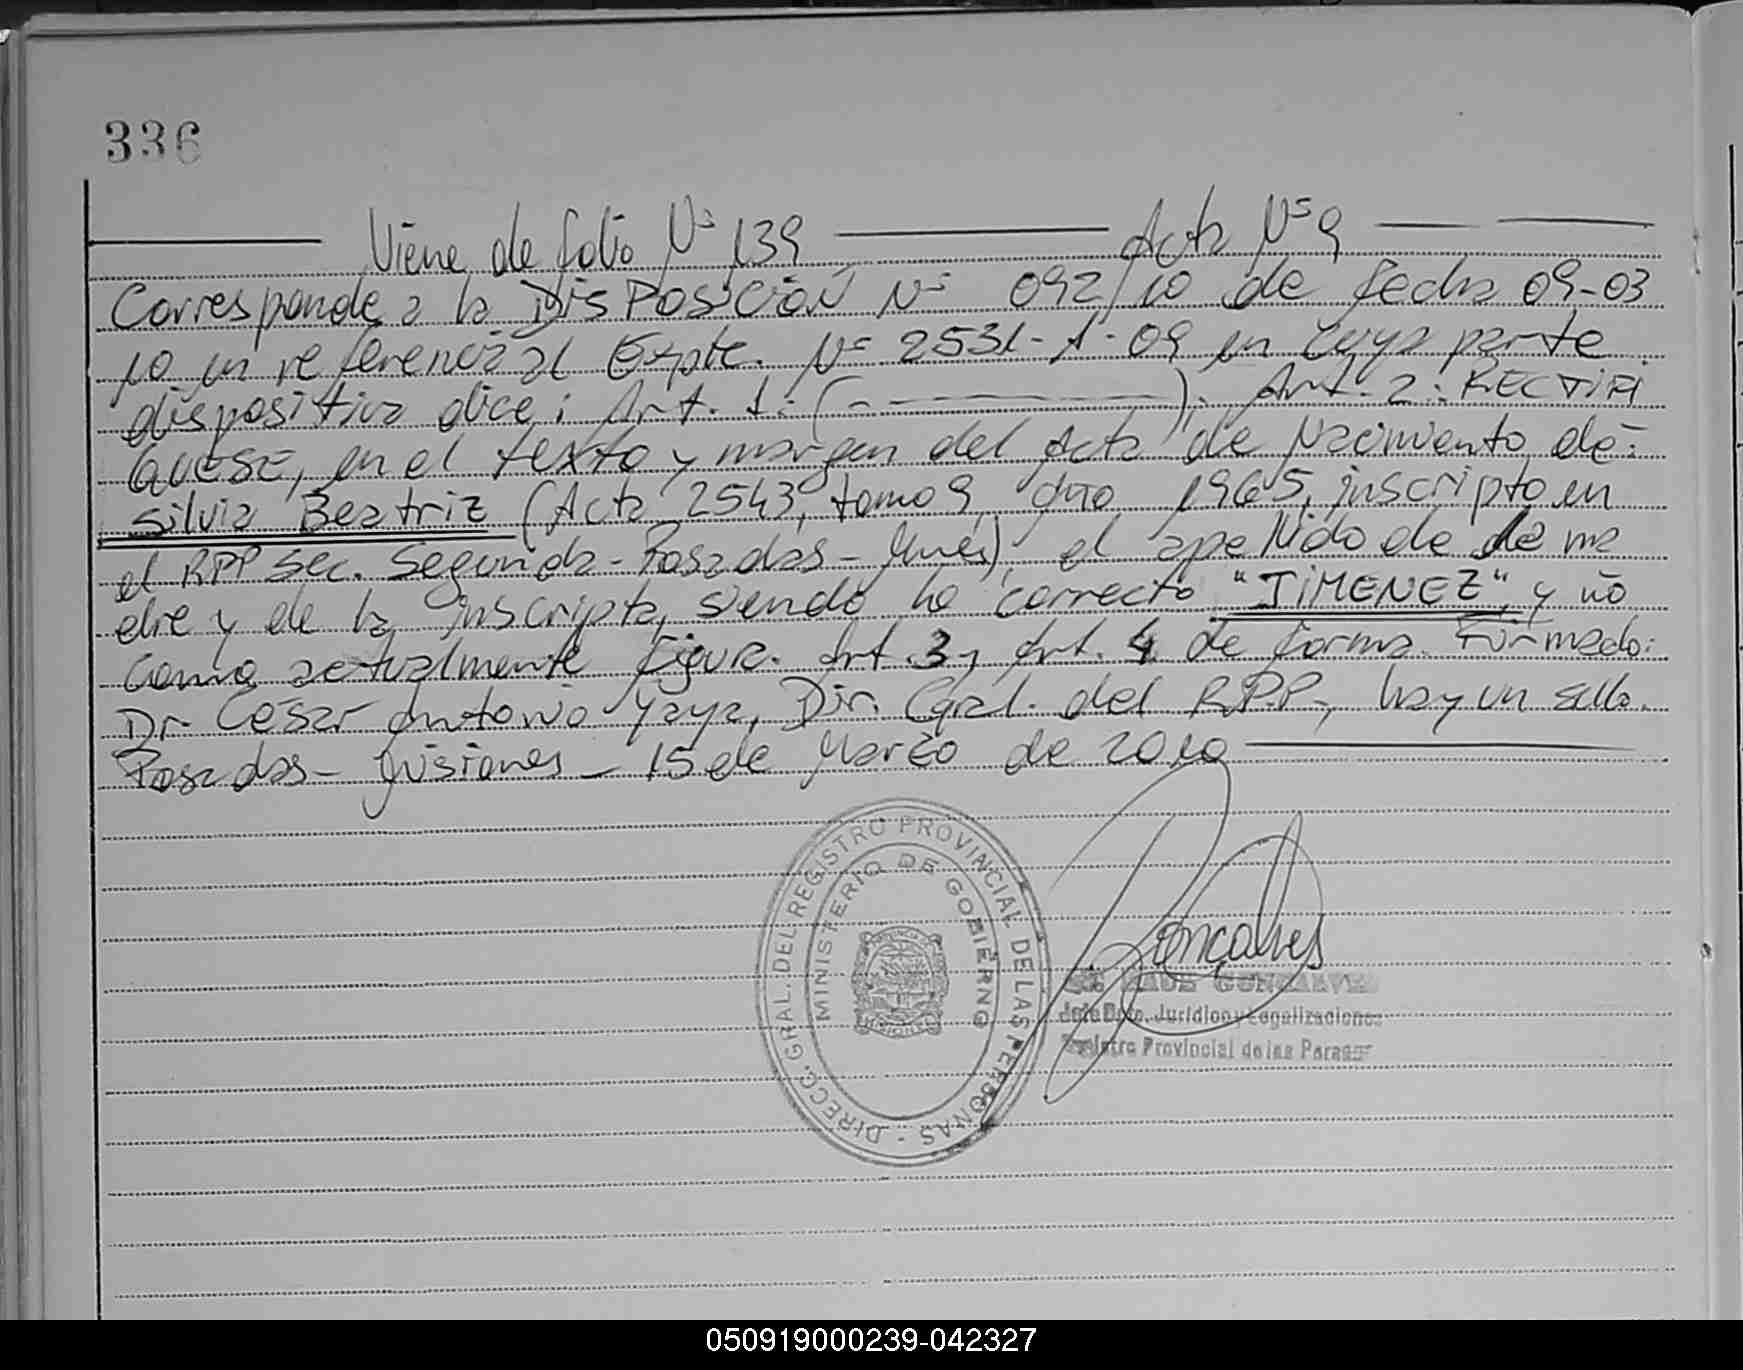 336
Viene de folio Nº 139 Acta Nº 9
Corresponde a la DISPOSICION Nº 092/10 de fecha 09-03
10 en referencia al Expte. Nº 2531-1-09 en cuya parte
dispositiva dice: Art. 1: (- ————). Art. 2: RECTIFI
QUESE, en el texto y margen del Acta de Nacimiento de:
Silvia Beatriz (Acta 2543, tomo 9, año 1965, inscripto en
el RPP sec. Segunda - Posadas - Mnes), el apellido de la ma
dre y de la inscripta, siendo lo correcto "JIMENEZ", y no
como actualmente figura. Art. 3 y Art. 4 de forma. Firmado:
Dr. César Antonio Yaya, Dir. Gral. del R.P.P., hay un sello.
Posadas - Misiones - 15 de Marzo de 2010
DIRECC. GRAL. DEL REGISTRO PROVINCIAL DE LAS PERSONAS -
MINISTERIO DE GOBIERNO
Goncalves
GONCALVES
Jefe Dpto. Juridico y Legalizaciones
Registro Provincial de las Personas
050919000239-042327